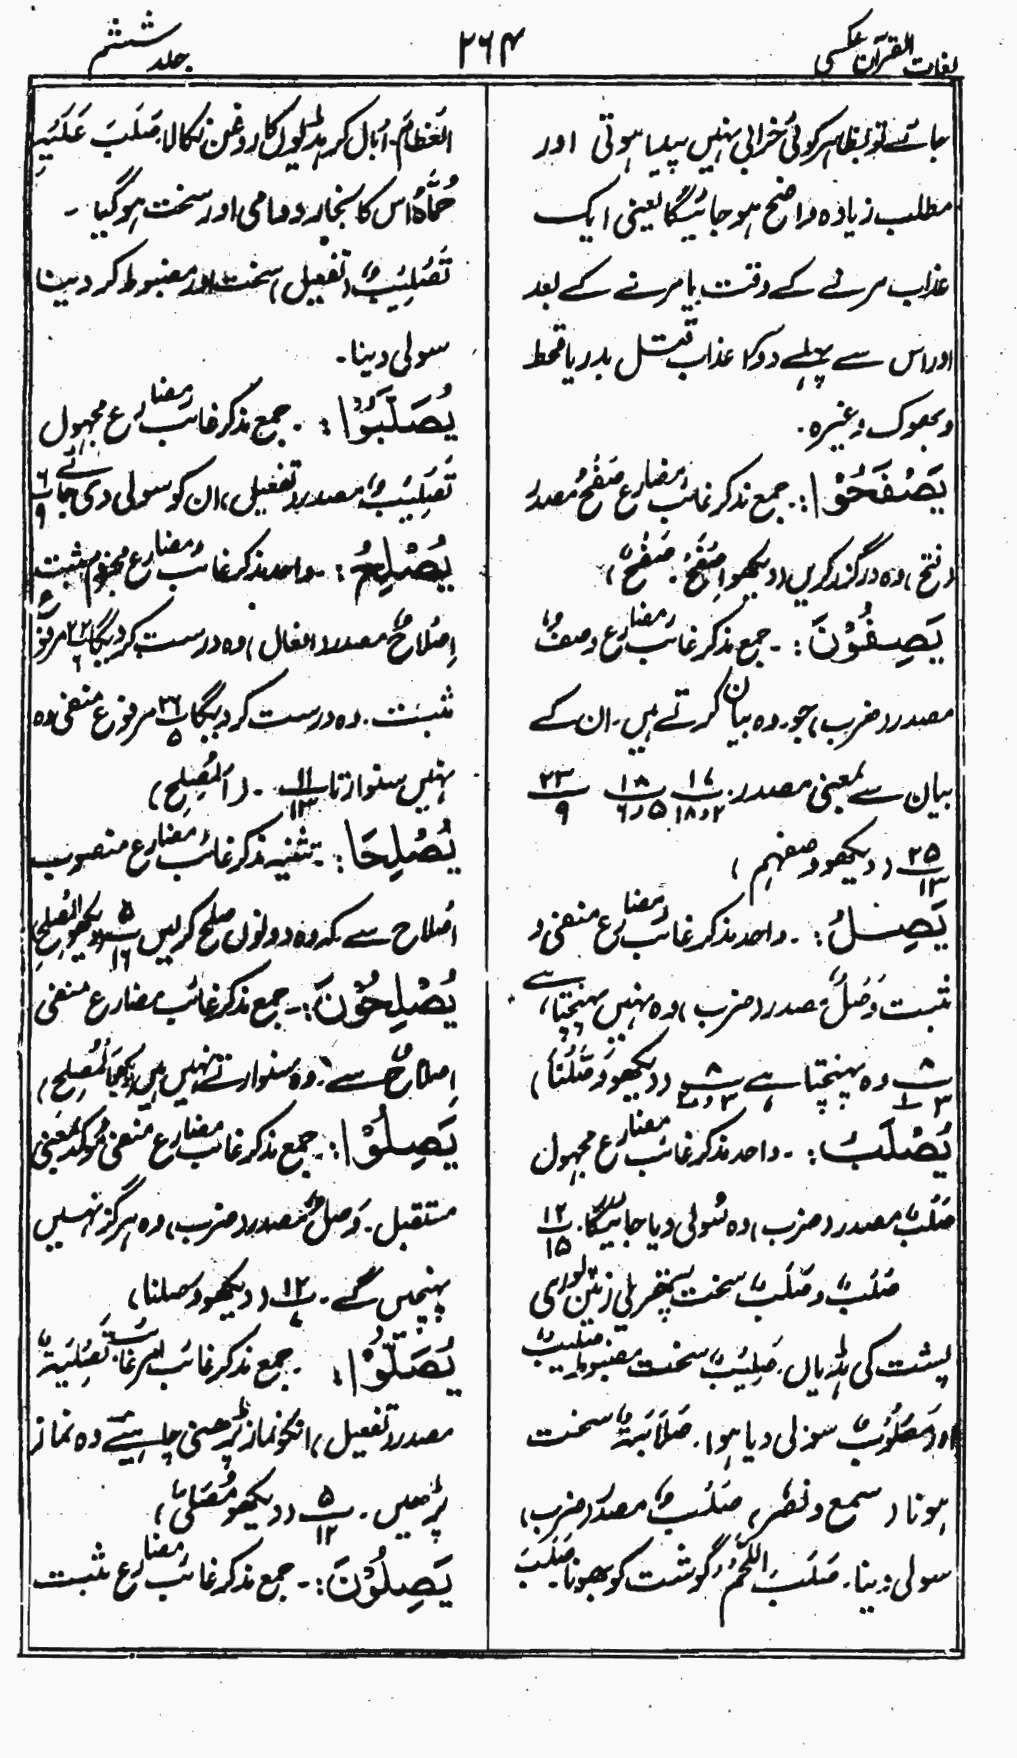 لغات القرآن عکسی
۲۶۴
جلد ششم
جائے تو بظاہر کوئی خرابی نہیں پیدا ہوتی اور
مطلب زیادہ واضح ہو جائیگا یعنی ایک
عذاب مرنے کے وقت یا مرنے کے بعد
اور اس سے پہلے دوکا عذاب قتل بدر یا قحط
و بھوک وغیرہ۔
یَصْفَحُوْا:۔ جمع مذکر غائب مضارع صَفْحٌ مصدر
(فتح) وہ درگذر کریں (دیکھو اِصْفَحْ۔ صَفْحٌ)
یَصِفُوْنَ:۔ جمع مذکر غائب مضارع وصفٌ
مصدر (ضرب) جو۔ وہ بیان کرتے ہیں۔ ان کے
بیان سے بمعنی مصدر۔ ۱۷/۲و۱۸ ۱۸/۵و۶ ۲۳/۹
۲۵/۱۳ (دیکھو وصفہم)
یَصِلُ:۔ واحد مذکر غائب مضارع منفی و
مثبت وَصْلٌ مصدر (ضرب) وہ نہیں پہنچتا ہے،
۸/۳ وہ پہنچتا ہے ۸/۳و۲ (دیکھو وَصَّلْنَا)
یُصْلَبُ:۔ واحد مذکر غائب مضارع مجہول
صَلْبٌ مصدر (ضرب) وہ سُولی دیا جائیگا۔ ۱۲/۱۵
صُلْبٌ و صَلَبٌ سخت پتھریلی زمین اور
پشت کی ہڈیاں۔ صَلِیْبٌ سخت مضبوط۔ صَلِیْبٌ
اور مَصْلُوْبٌ سولی دیا ہوا۔ صَلَابَۃٌ سخت
ہونا (سمع و نصر) صَلْبٌ مصدر (ضرب)
سولی دینا۔ صَلَبَ اللَّحْمَ گوشت کو بھونا۔ صَلَبَ
الْعِظَامَ۔ اُبال کر ہڈیوں کا روغن نکالا۔ صَلَبَ عَلَیْہِ
حُمَّاہُ اس کا بخار دوامی اور سخت ہو گیا۔
تَصْلِیْبٌ (تفعیل) سخت اور مضبوط کر دینا
سولی دینا۔
یُصَلَّبُوْا:۔ جمع مذکر غائب مضارع مجہول
تَصْلِیْبٌ مصدر (تفعیل) ان کو سولی دی جائے ۶/۹
یُصْلِحُ:۔ واحد مذکر غائب مضارع مجزوم مثبت
اِصْلَاحٌ مصدر (افعال) وہ درست کر دیگا ۲۲/۶ مرفوع
مثبت۔ وہ درست کر دیگا ۲۶/۵ مرفوع منفی وہ
نہیں سنوارتا ۱۱/۱۳۔ (اَلْمُصْلِح)
یُصْلِحَا:۔ تثنیہ مذکر غائب مضارع منصوب
اصلاح سے کہ وہ دونوں صلح کرلیں ۵/۱۶ (دیکھو المُصْلِح)
یُصْلِحُوْنَ:۔ جمع مذکر غائب مضارع منفی
اِصلاحٌ سے۔ وہ سنوارتے نہیں ہیں (دیکھو اَلْمُصْلِح)
یَصِلُوْا:۔ جمع مذکر غائب مضارع منفی مؤکد بمعنی
مستقبل۔ وَصْلٌ مصدر (ضرب) وہ ہرگز نہیں
پہنچیں گے۔ ۱۲/۷ (دیکھو وصلنا)
یُصَلُّوْا:۔ جمع مذکر غائب امر غائب تَصْلِیَۃٌ
مصدر (تفعیل) انکو نماز پڑھنی چاہیئے وہ نماز
پڑھیں۔ ۵/۱۲ (دیکھو مُصَلًّی)
یَصِلُوْنَ:۔ جمع مذکر غائب مضارع مثبت